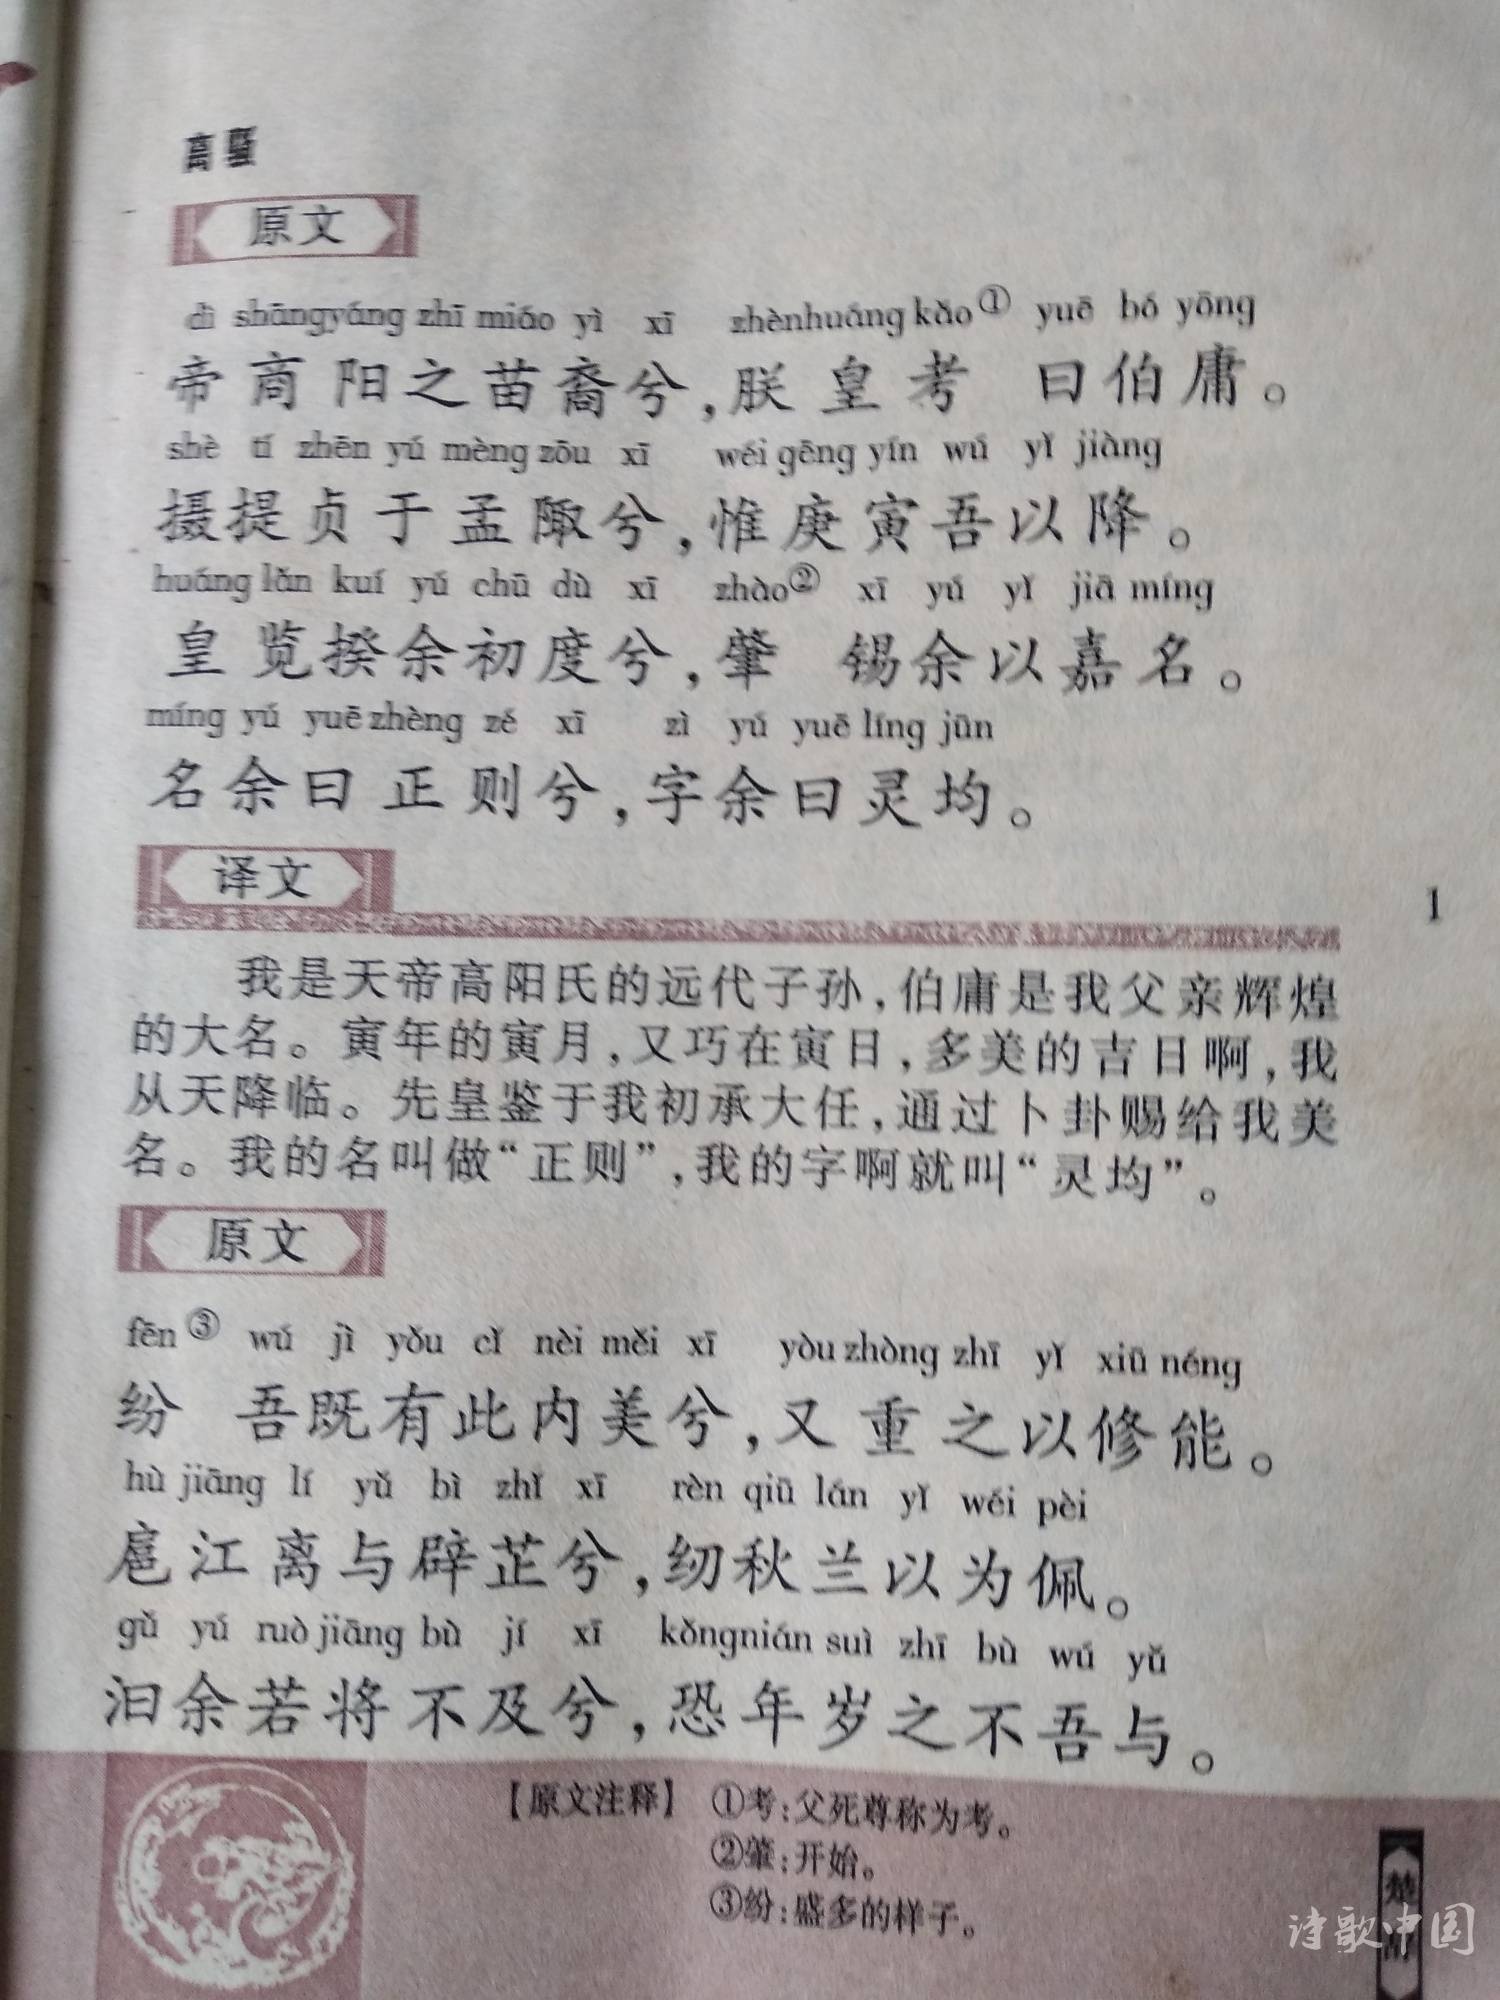 离骚
原文
dì shāngyáng zhī miáo yì xī zhènhuáng kǎo① yuē bó yōng
帝商阳之苗裔兮，朕皇考 曰伯庸。
shè tí zhēn yú mèng zōu xī wéi gēng yín wú yǐ jiàng
摄提贞于孟陬兮，惟庚寅吾以降。
huáng lǎn kuí yú chū dù xī zhào② xī yú yǐ jiā míng
皇览揆余初度兮，肇 锡余以嘉名。
míng yú yuē zhèng zé xī zì yú yuē líng jūn
名余曰正则兮，字余曰灵均。
译文
1
我是天帝高阳氏的远代子孙，伯庸是我父亲辉煌
的大名。寅年的寅月，又巧在寅日，多美的吉日啊，我
从天降临。先皇鉴于我初承大任，通过卜卦赐给我美
名。我的名叫做“正则”，我的字啊就叫“灵均”。
原文
fēn③ wú jì yǒu cǐ nèi měi xī yòu zhòng zhī yǐ xiū néng
纷 吾既有此内美兮，又重之以修能。
hù jiāng lí yǔ bì zhǐ xī rèn qiū lán yǐ wéi pèi
扈江离与辟芷兮，纫秋兰以为佩。
gǔ yú ruò jiāng bù jí xī kǒngnián suì zhī bù wú yǔ
汩余若将不及兮，恐年岁之不吾与。
【原文注释】 ①考：父死尊称为考。
②肇：开始。
③纷：盛多的样子。
楚
诗歌中国